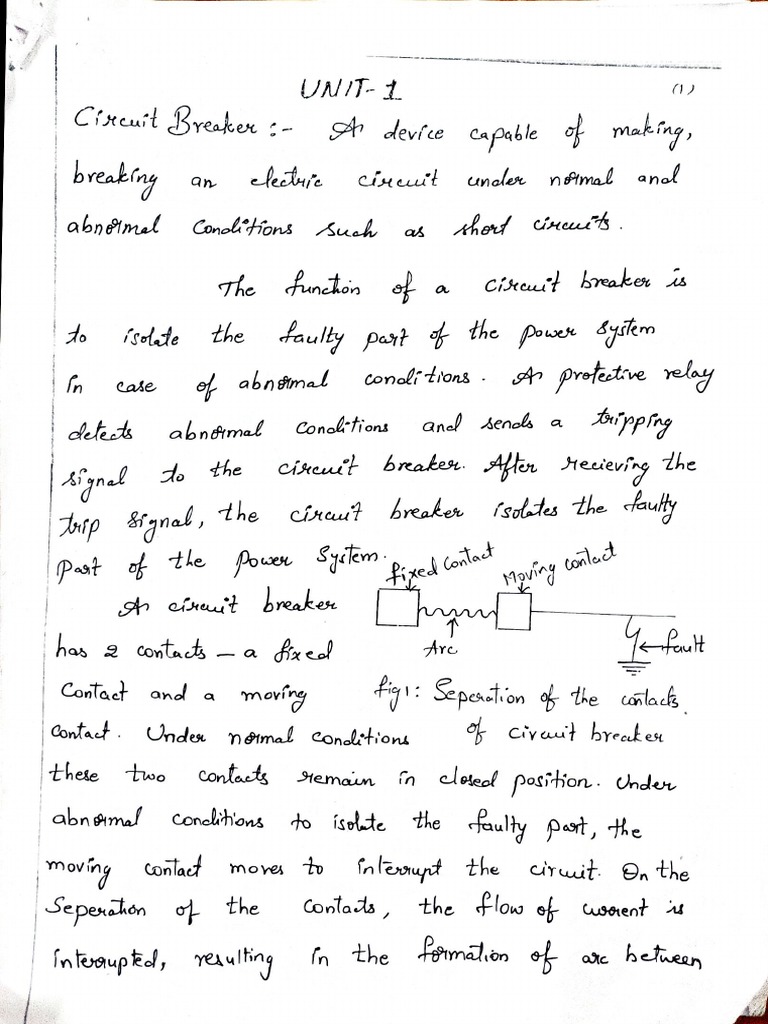 UNIT-1
(1)
Circuit Breaker :- A device capable of making,
breaking an electric circuit under normal and
abnormal Conditions such as short circuits.
The function of a circuit breaker is
to isolate the faulty part of the power system
in case of abnormal conditions. A protective relay
detects abnormal conditions and sends a tripping
signal to the circuit breaker. After recieving the
trip signal, the circuit breaker isolates the faulty
part of the power system.
fixed contact
Moving contact
A circuit breaker
has 2 contacts – a fixed
Arc
fault
Contact and a moving
fig1: Seperation of the contacts
of circuit breaker
contact. Under normal conditions
these two contacts remain in closed position. Under
abnormal conditions to isolate the faulty part, the
moving contact moves to interrupt the circuit. On the
Seperation of the contacts, the flow of current is
interrupted, resulting in the formation of arc between